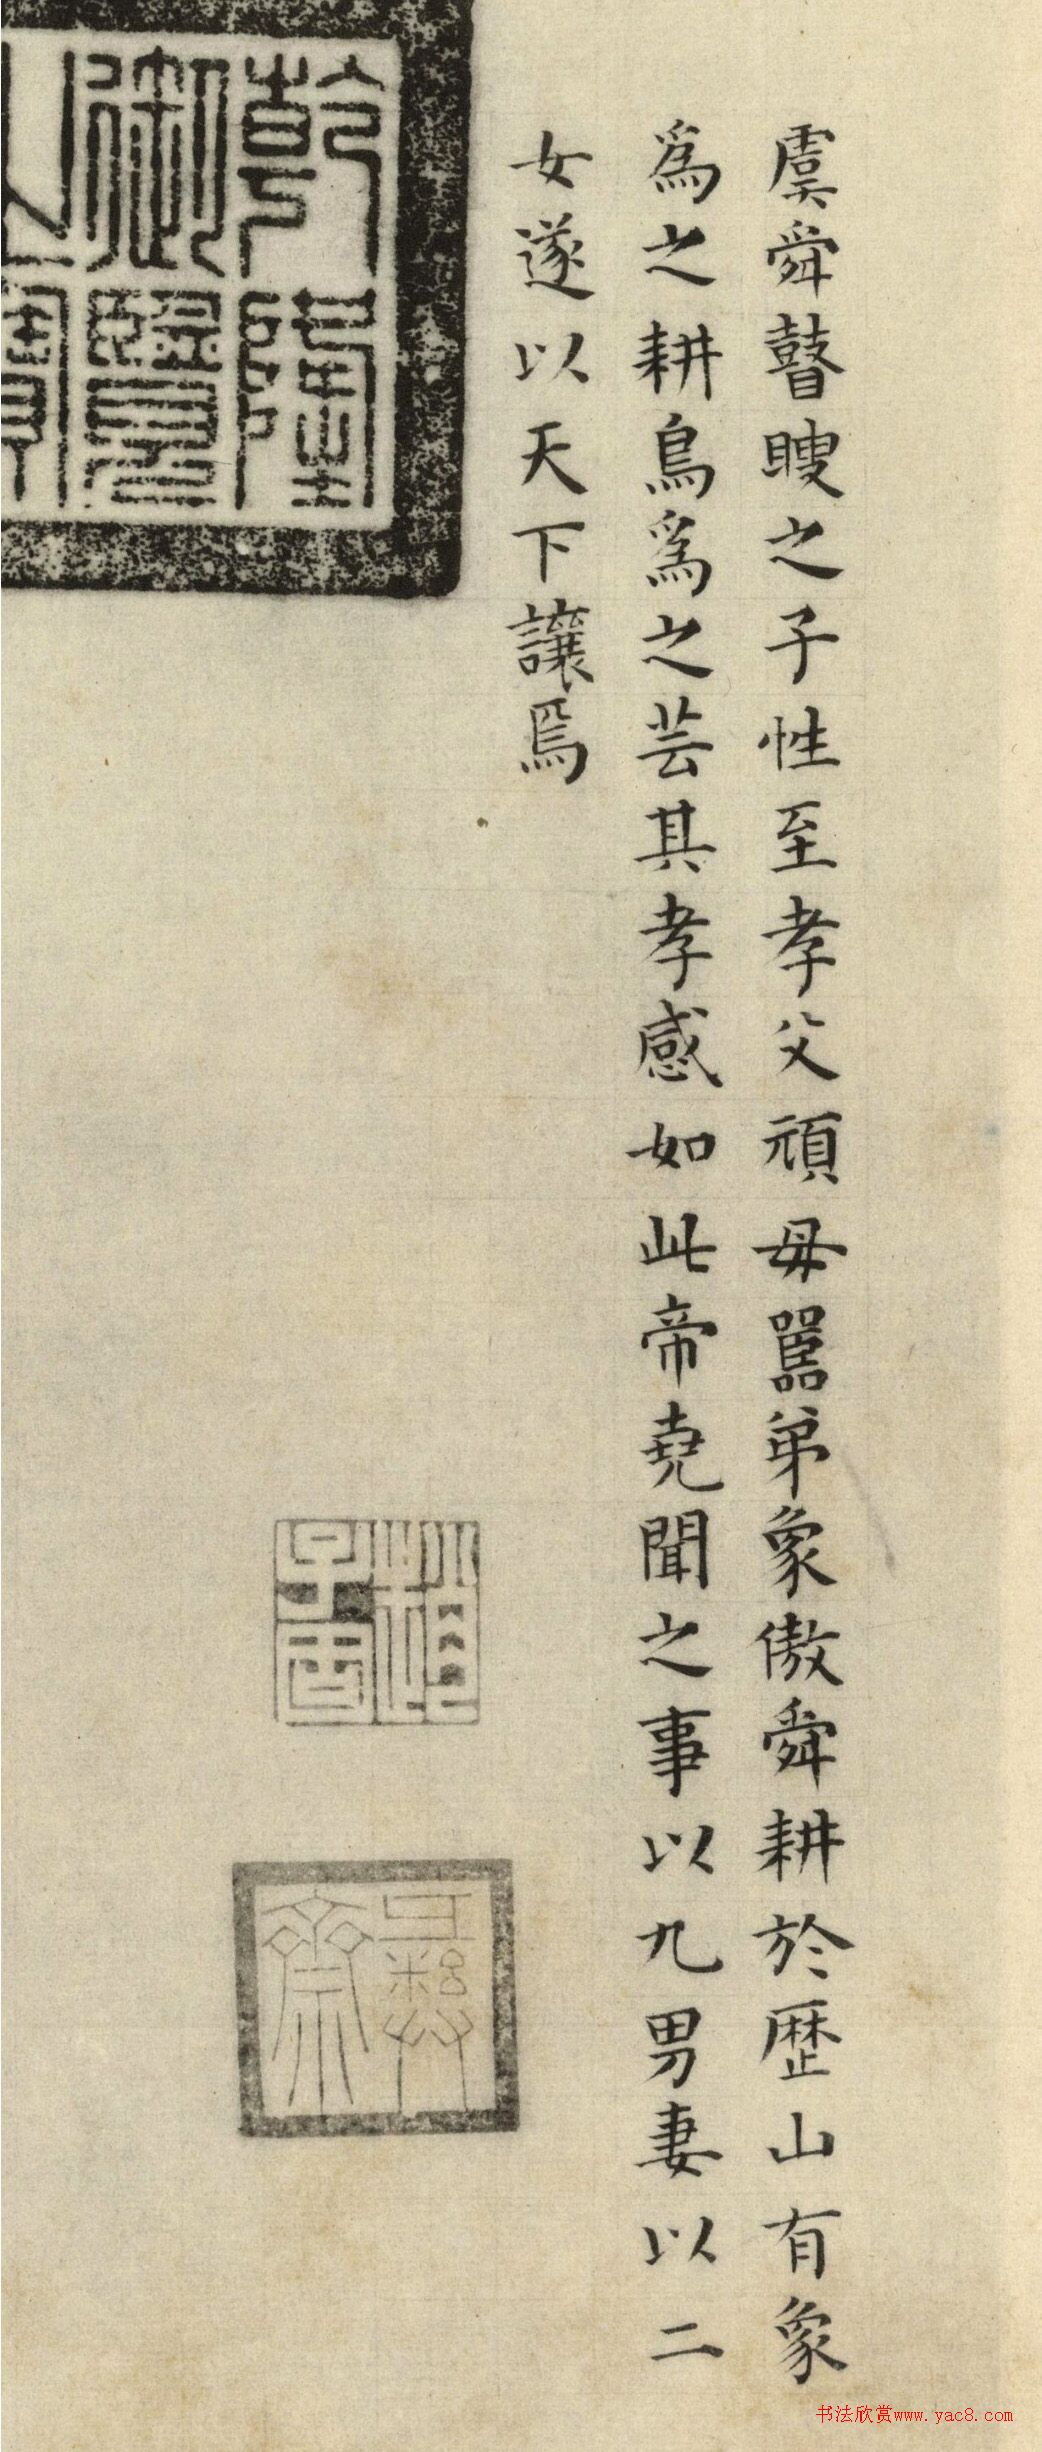 虞舜瞽瞍之子性至孝父頑母嚚弟象傲舜耕於歷山有象
為之耕鳥為之芸其孝感如此帝堯聞之事以九男妻以二
女遂以天下讓焉
乾隆
御覽
之寶
趙
子昂
書法欣赏www.yac8.com